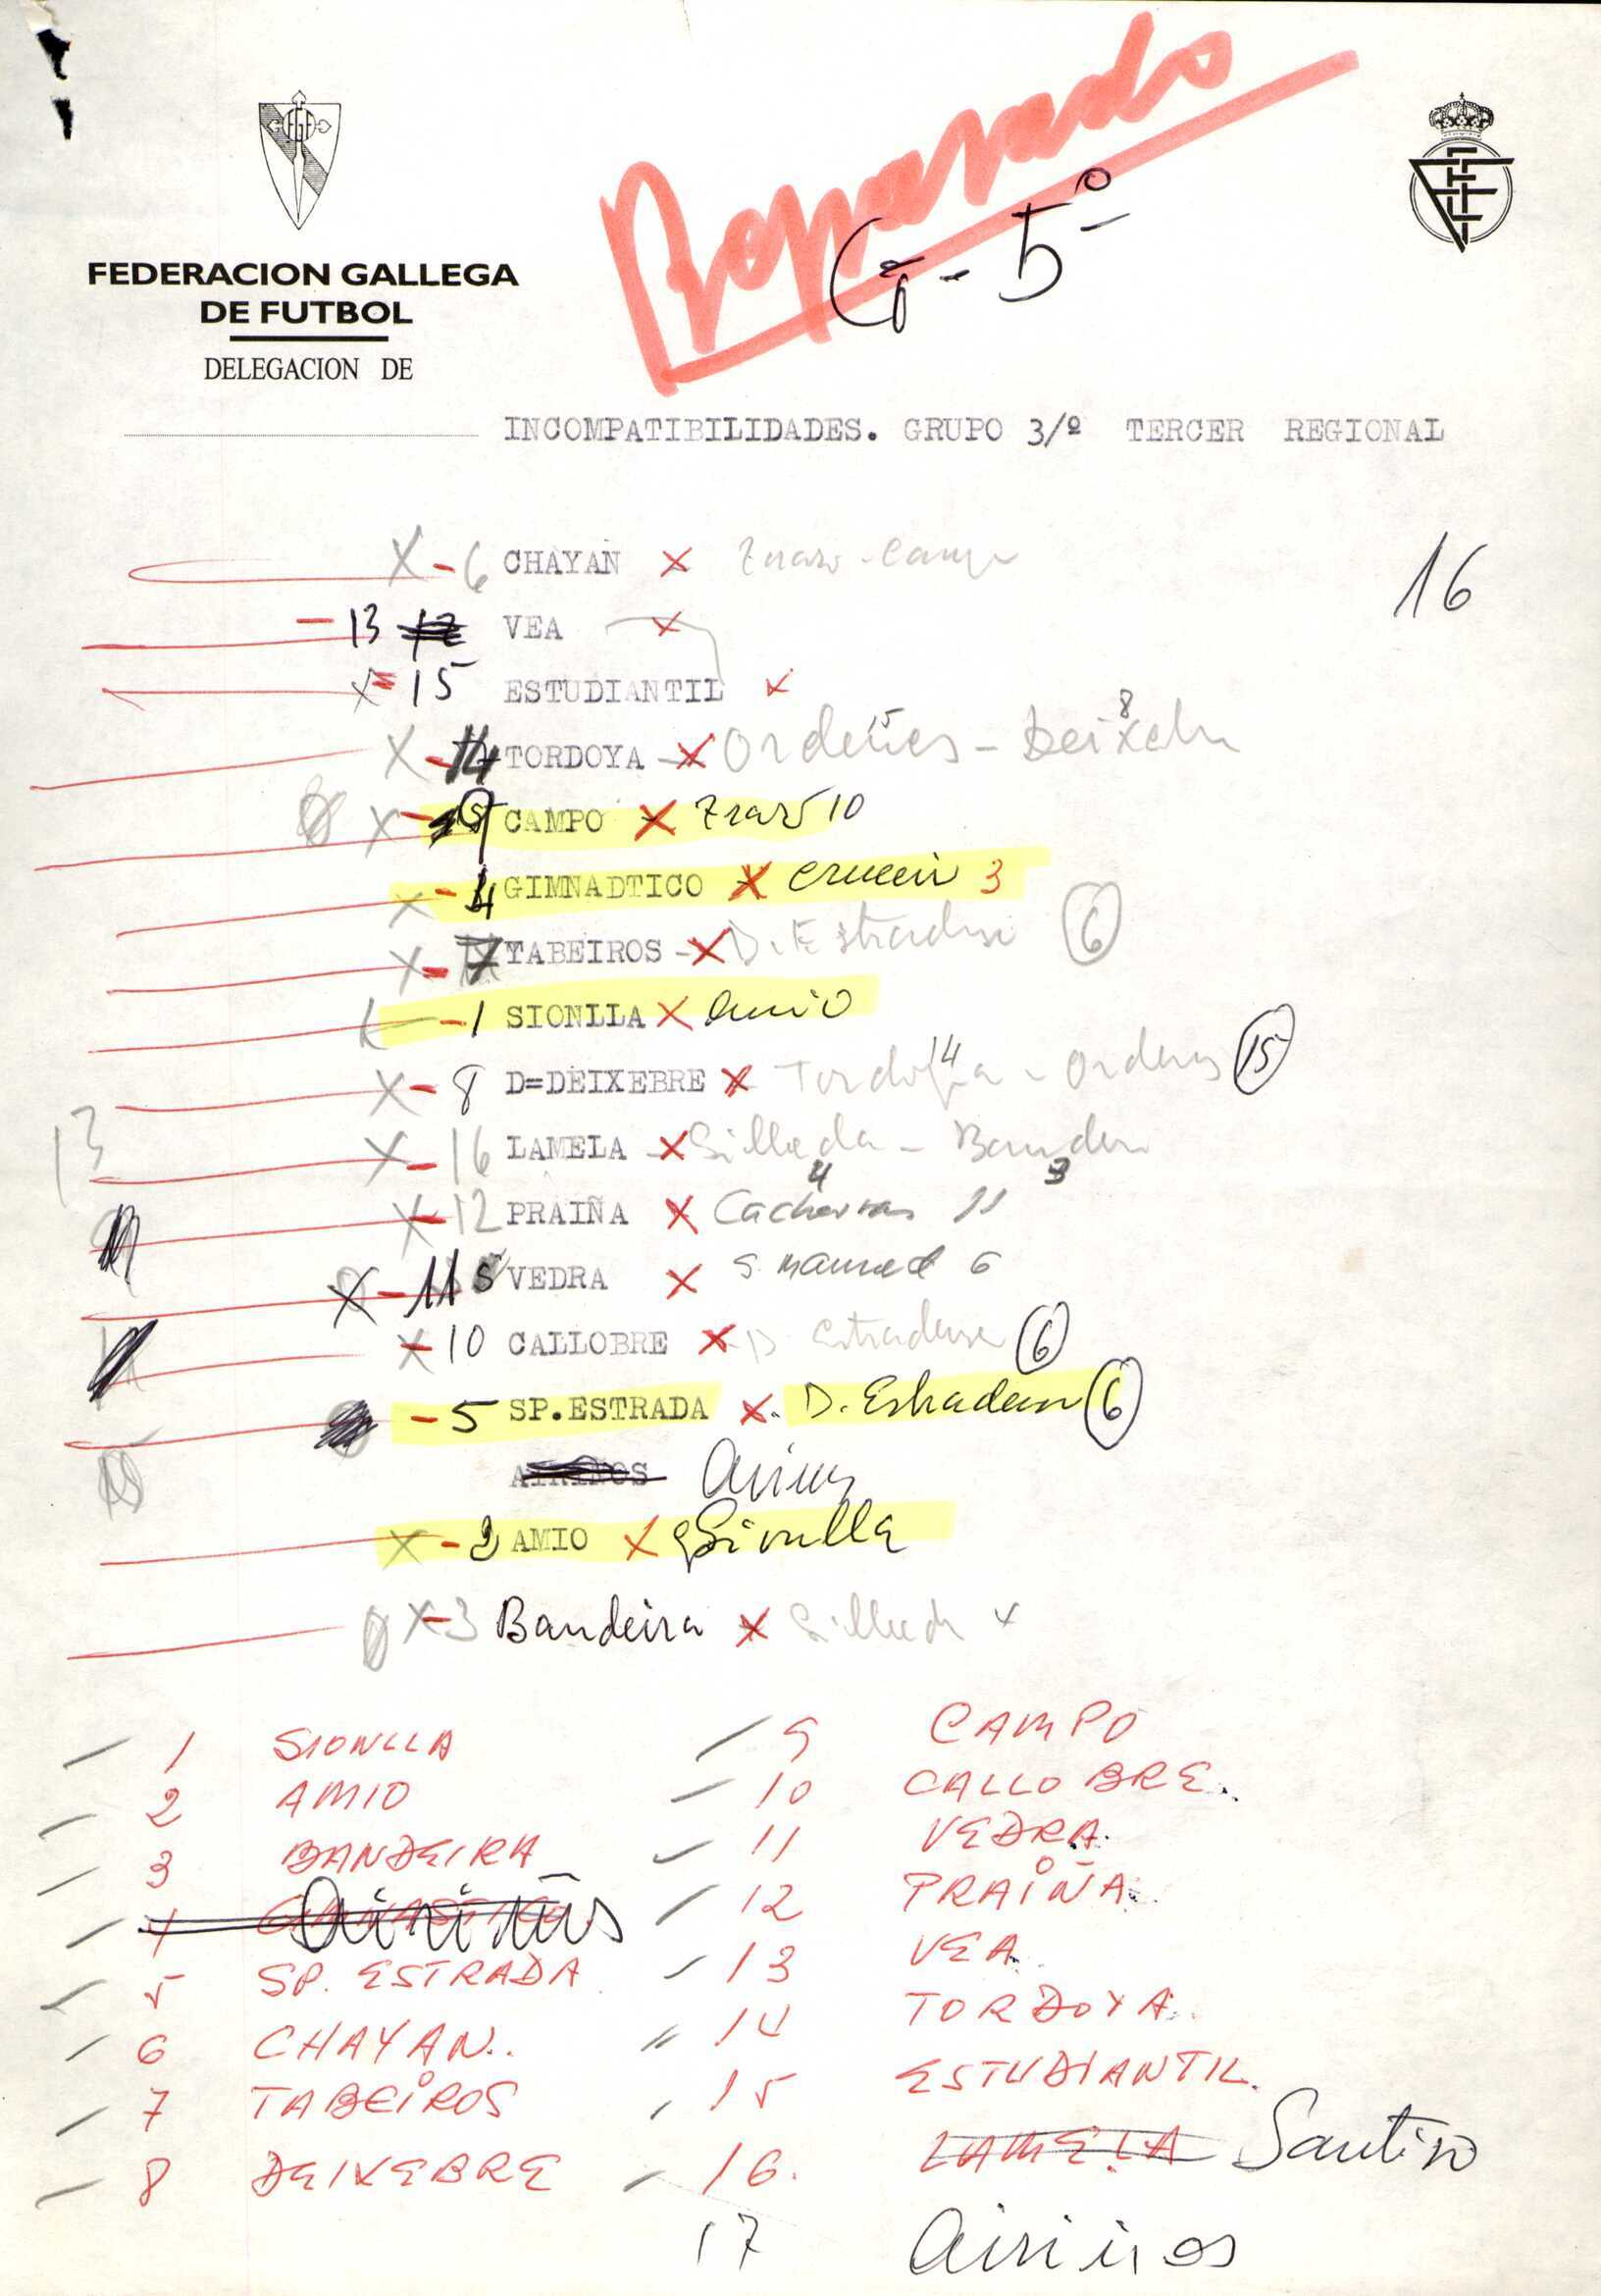 Repasado
G-5º
FEDERACION GALLEGA
DE FUTBOL
DELEGACION DE
INCOMPATIBILIDADES. GRUPO 3/º TERCER REGIONAL
16
X-6 CHAYAN X
-13 VEA X
X-15 ESTUDIANTIL X
X-14 TORDOYA X Ordenes 15 - Deixebre 8
X-9 CAMPO X 10
X-4 GIMNADTICO X 3
X-7 TABEIROS -X D. Estradense 6
-1 SIONLLA X Amio
X-8 D=DEIXEBRE X Tordoya 14 - Ordenes 15
13 X-16 LAMELA X Silleda 4 - Bandeira 3
X-12 PRAIÑA X 11
X-11 VEDRA X S. Mamed 6
X-10 CALLOBRE X D. Estradense 6
-5 SP.ESTRADA X. D. Estradense 6
AIRIÑOS Airiños
X-2 AMIO X Sionlla
X-3 Bandeira X Silleda 4
1 SIONLLA
2 AMIO
3 BANDEIRA
4 GIMNASTICO Airiños
5 SP. ESTRADA
6 CHAYAN..
7 TABEIROS
8 DEIXEBRE
9 CAMPO
10 CALLOBRE.
11 VEDRA.
12 PRAIÑA.
13 VEA.
14 TORDOYA.
15 ESTUDIANTIL.
16. LAMELA Santiso
17 Airiños